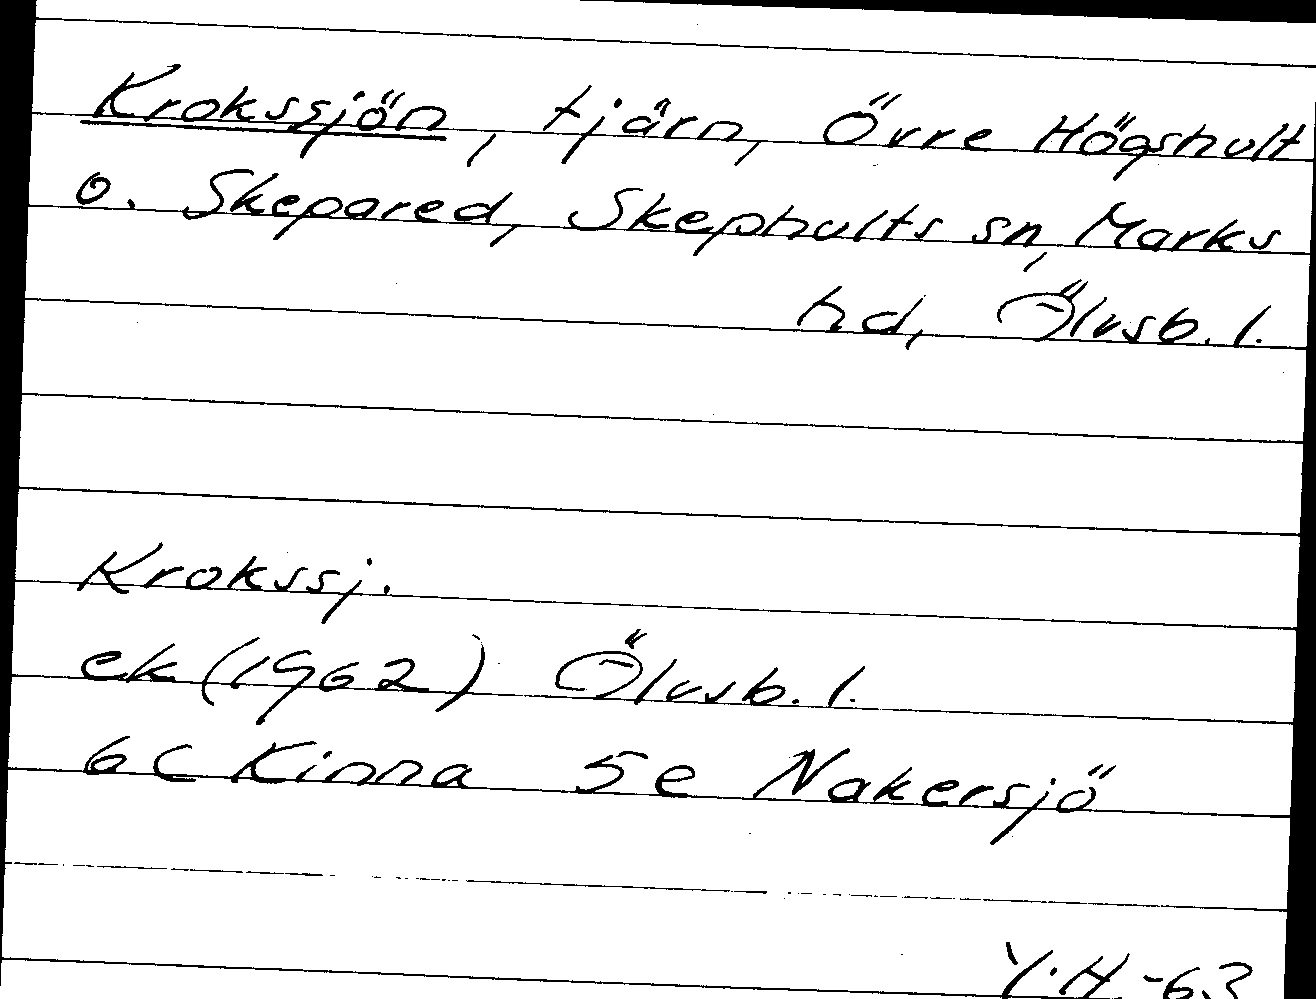 Krokssjön, tjärn, Övre Högshult
o. Skepared, Skephults sn, Marks
hd, Älvsb. l.
Krokssj.
ek (1962) Älvsb. l.
6 C Kinna 5e Nakersjö
Y.H -63